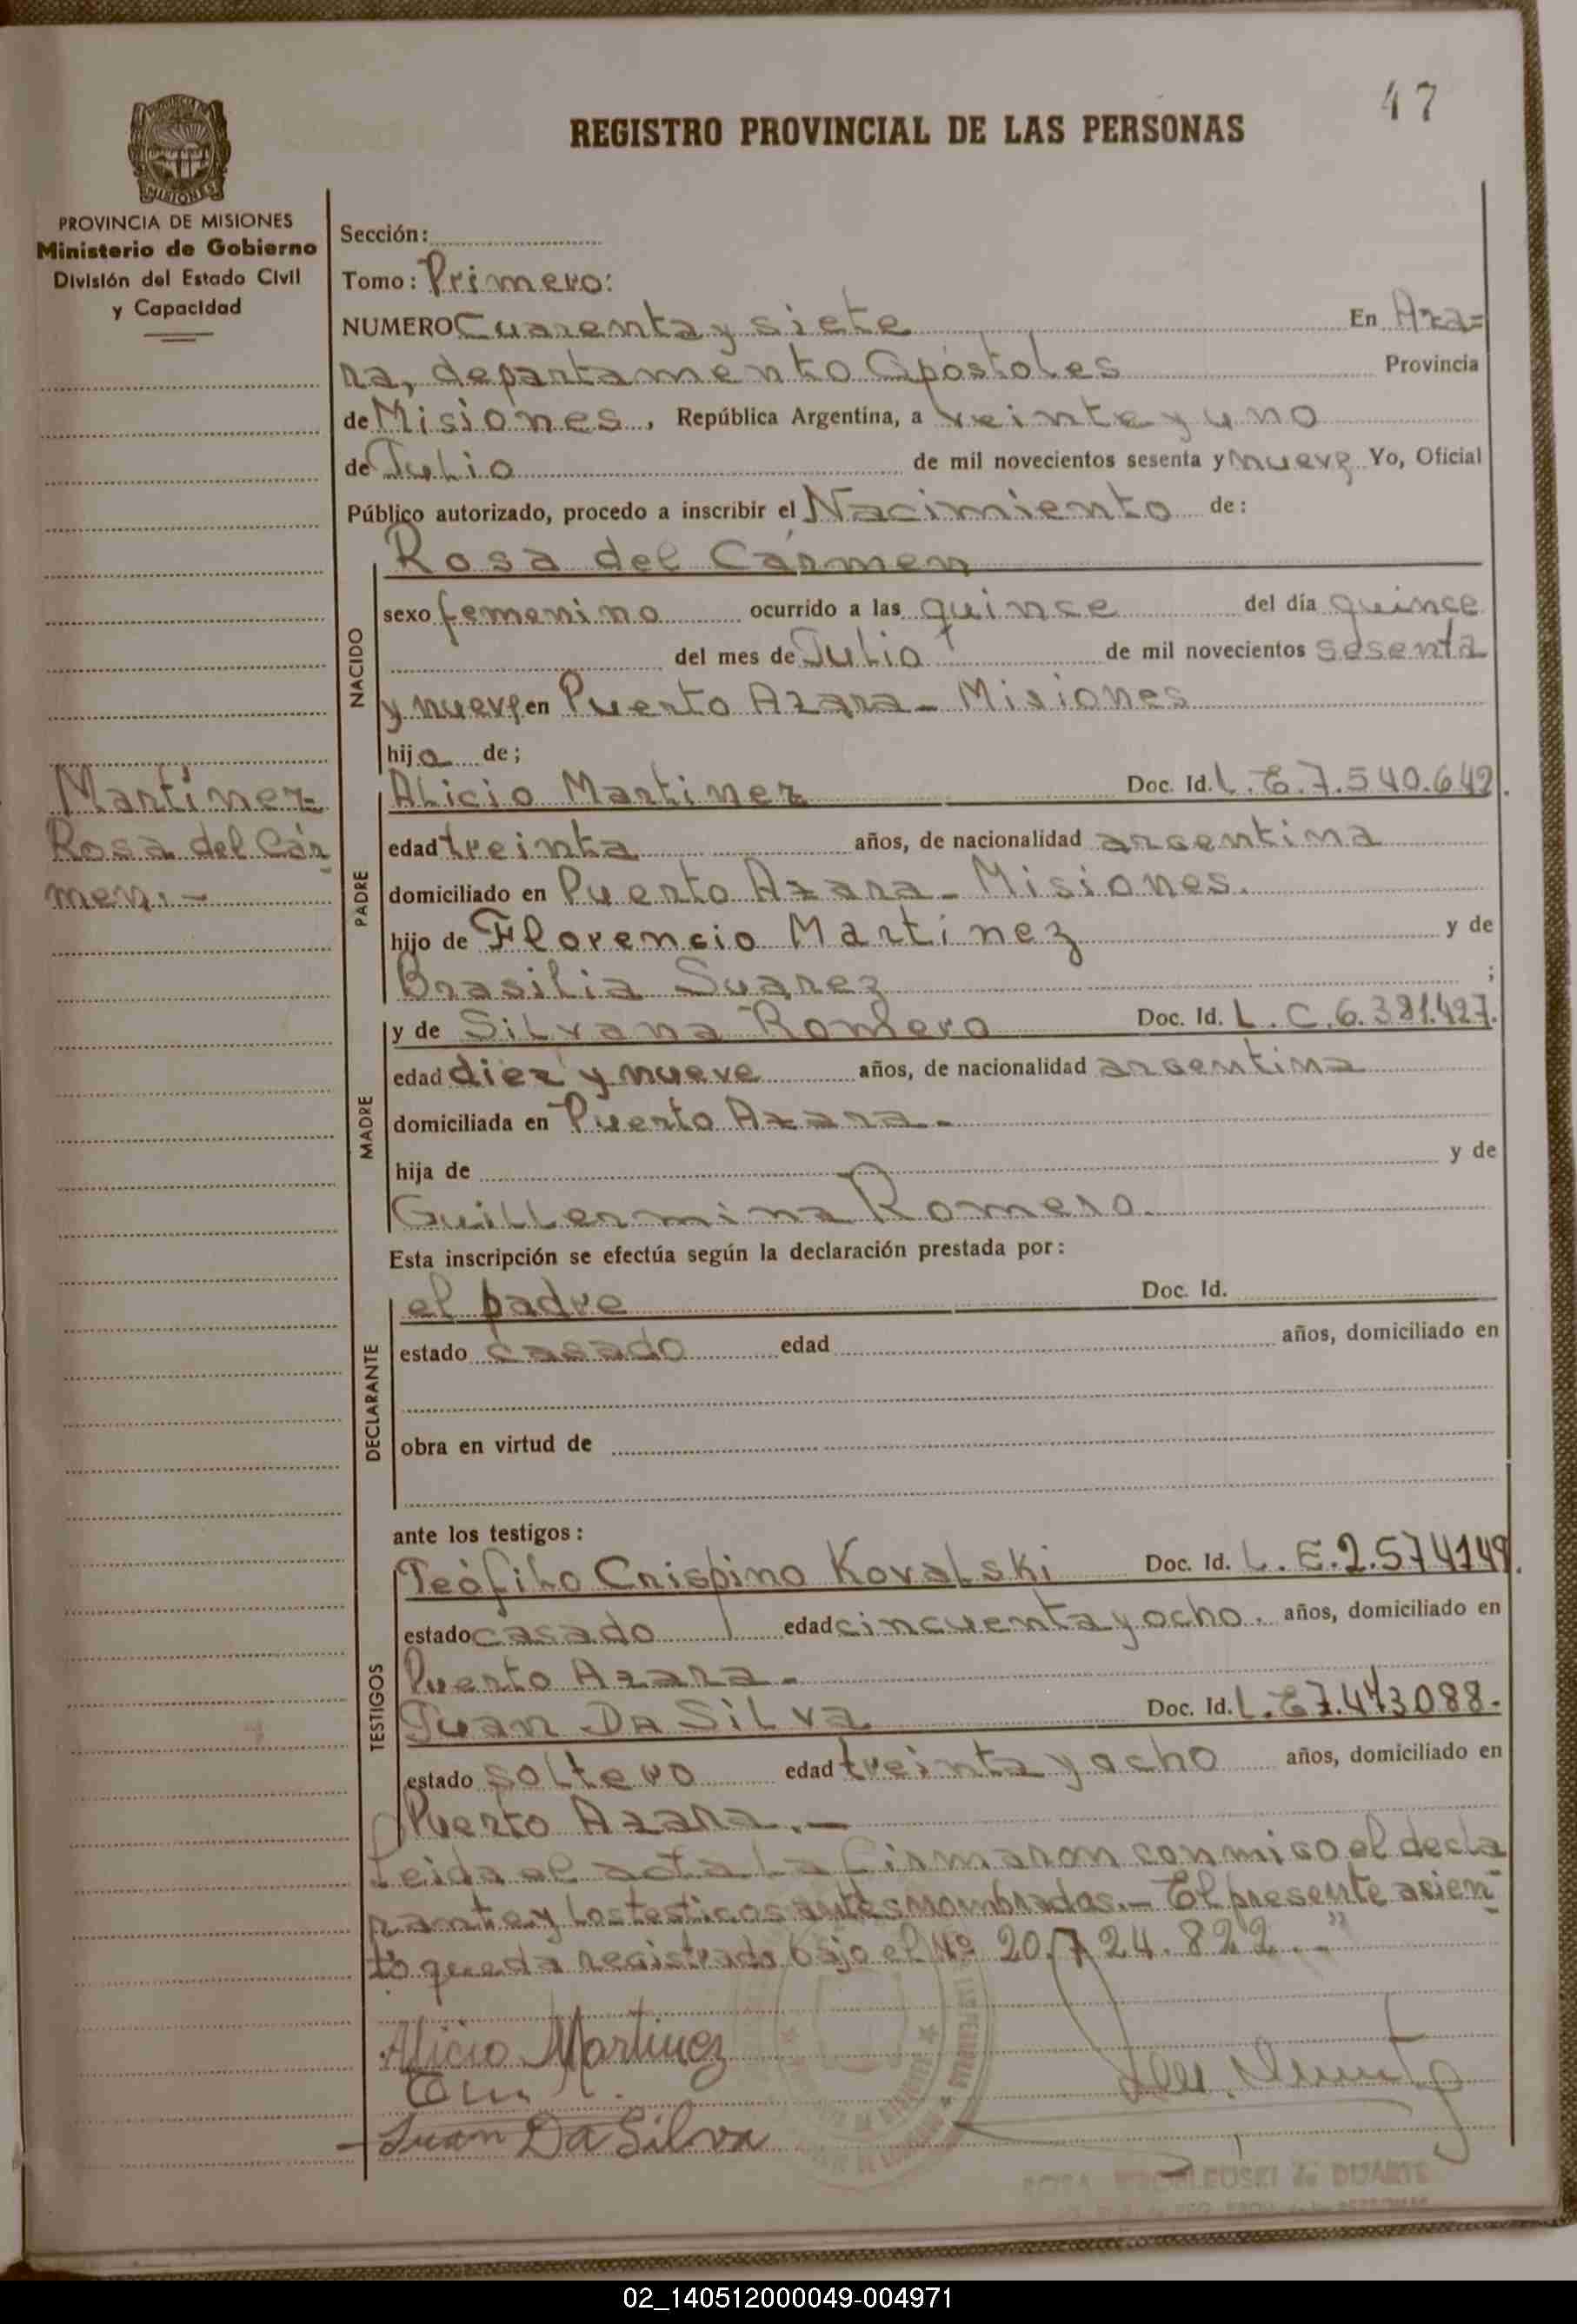 47
REGISTRO PROVINCIAL DE LAS PERSONAS
PROVINCIA DE MISIONES
Ministerio de Gobierno
División del Estado Civil
y Capacidad
Sección:
Tomo: Primero:
NUMERO Cuarenta y siete En Aza=
ra, departamento Apóstoles Provincia
de Misiones, República Argentina, a veinte y uno
de Julio de mil novecientos sesenta y nueve Yo, Oficial
Público autorizado, procedo a inscribir el Nacimiento de:
NACIDO
Rosa del Cármen
sexo femenino ocurrido a las quince del día quince
del mes de Julio de mil novecientos sesenta
y nueve en Puerto Azara - Misiones
hija de;
Martinez
Rosa del Cár
men.-
PADRE
Alicio Martinez Doc. Id. L.E.7.540.642.
edad treinta años, de nacionalidad argentina
domiciliado en Puerto Azara - Misiones.
hijo de Florencio Martinez y de
Brasilia Suarez ;
MADRE
y de Silvana Romero Doc. Id. L.C.6.381.427.
edad diez y nueve años, de nacionalidad argentina
domiciliada en Puerto Azara.-
hija de y de
Guillermina Romero.
Esta inscripción se efectúa según la declaración prestada por:
DECLARANTE
el padre Doc. Id.
estado casado edad años, domiciliado en
obra en virtud de
ante los testigos:
TESTIGOS
Teófilo Crispino Kovalski Doc. Id. L.E.2.574149.
estado casado edad cincuenta y ocho. años, domiciliado en
Puerto Azara -
Juan Da Silva Doc. Id. L.E7.473088.-
estado soltero edad treinta y ocho años, domiciliado en
Puerto Azara.-
Leida el acta la firmaron conmigo el decla
rante y los testigos antes nombrados.- El presente asien
to queda registrado bajo el Nº 20.724.822.-"
Alicio Martinez
Juan Da Silva
DUARTE
02_140512000049-004971